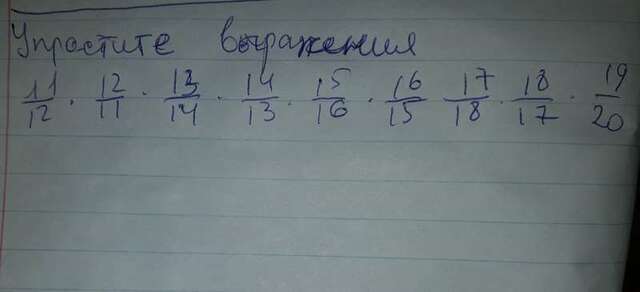 Упростите выражения
11/12 · 12/11 · 13/14 · 14/13 · 15/16 · 16/15 · 17/18 · 18/17 · 19/20